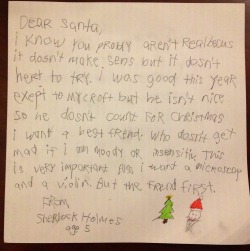 DEAR SANTA,
i know you probly aren't Real becus
it doesn't make sens but it doesn't
hert to try. i was good this year
exept to Mycroft but he isn't nice
so he dosn't count. For Christmas
i want a best friend, who dosn't get
mad if i am moody or insensitiv. This
is very important. Also i want a microscop
and a violin. But the frend first.
From,
Sherlock Holmes
age 5